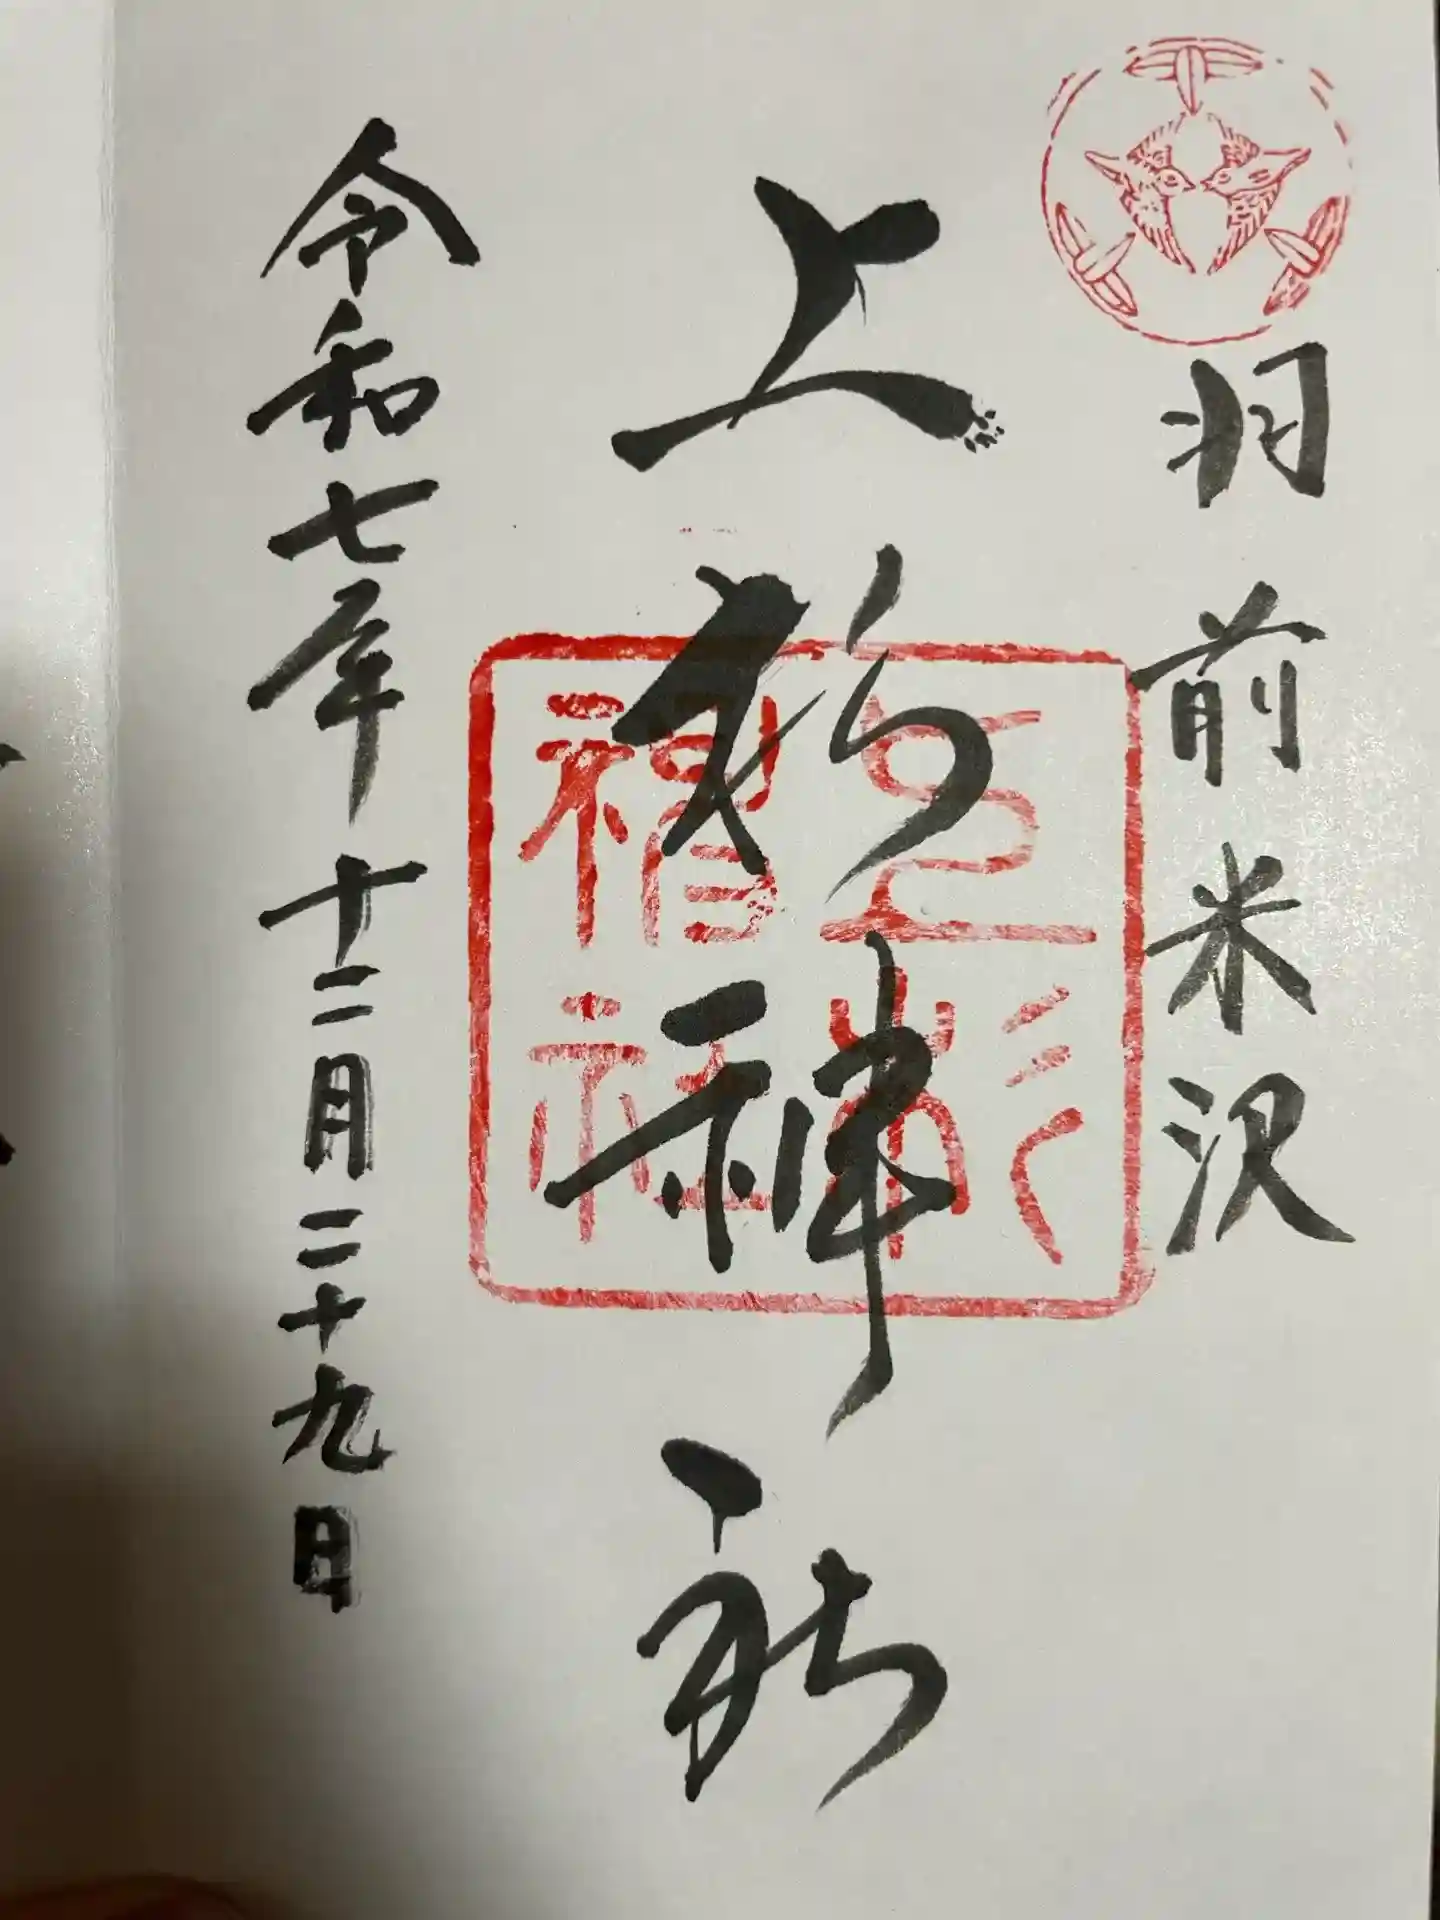 羽前米沢
上杉神社
上杉神社
令和七年十二月二十九日